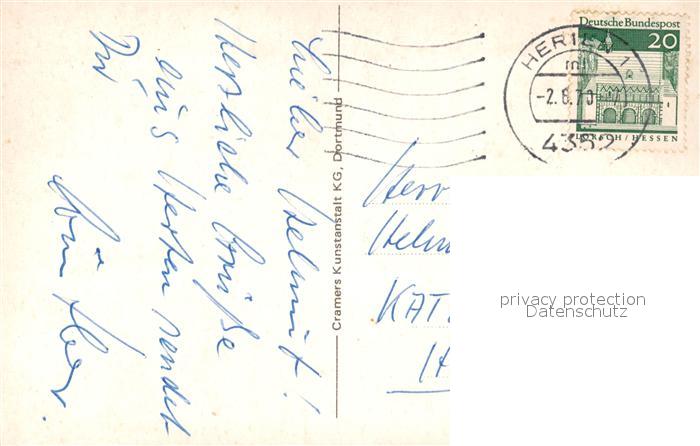 Lieber Helmut!
Herzliche Grüße
aus Herten sendet
Dir
Cramers Kunstanstalt KG, Dortmund
Deutsche Bundespost
20
LORSCH / HESSEN
HERTEN 1
-2.8.70
4352
Herrn
Helm
KAT
privacy protection
Datenschutz